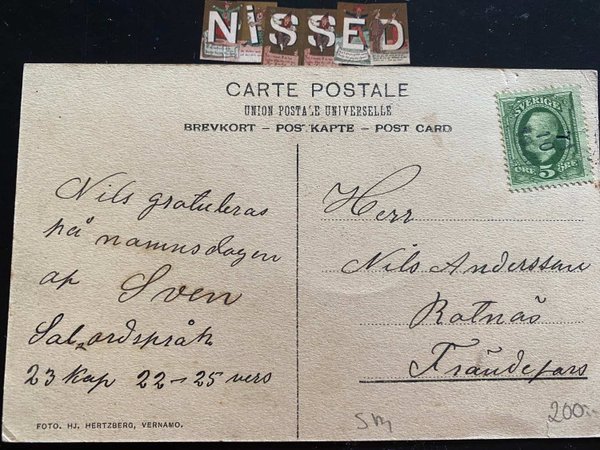 NISSED
CARTE POSTALE
UNION POSTALE UNIVERSELLE
BREVKORT – POSTKARTE – POST CARD
SVERIGE
5
ÖRE ÖRE
Nils gratuleras
på namnsdagen
af Sven
Sal. ordspråk
23 kap 22-25 vers
Herr
Nils Andersson
Rotnäs
FOTO. HJ. HERTZBERG, VERNAMO.
200:-